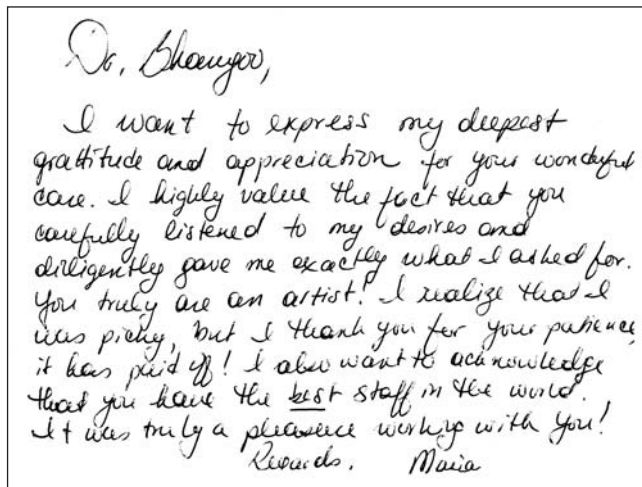 Dr. Bhangoo,
I want to express my deepest
grattitude and appreciation for your wonderful
care. I highly value the fact that you
carefully listened to my desires and
dilligently gave me exactly what I asked for.
You truly are an artist! I realize that I
was picky, but I thank you for your patience,
it has paid off! I also want to acknowledge
that you have the best staff in the world.
It was truly a pleasure working with you!
Regards, Maria